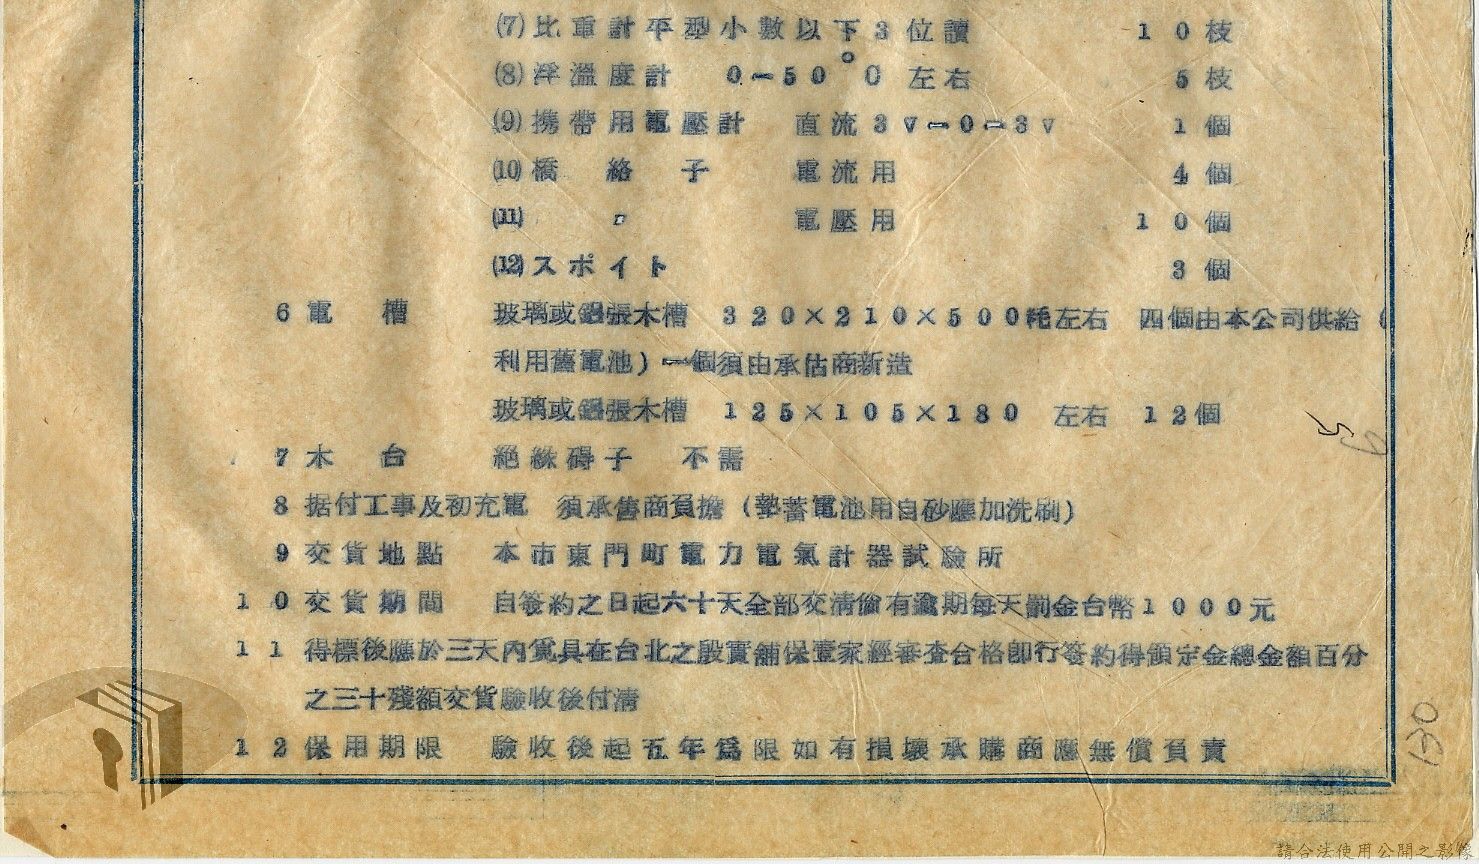 (7)比重計平型小數以下3位讀 10枝
(8)浮溫度計 0-50°C左右 5枝
(9)携帶用電壓計 直流3v-0-3v 1個
(10)橋絡子 電流用 4個
(11) 〃 電壓用 10個
(12)スポイト 3個
6 電槽 玻璃或鉛張木槽 320×210×500粍左右 四個由本公司供給(
利用舊電池)一個須由承估商新造
玻璃或鉛張木槽 125×105×180 左右 12個
7 木台 絕緣碍子 不需
8 据付工事及初充電 須承售商負擔(墊蓄電池用白砂應加洗刷)
9 交貨地點 本市東門町電力電氣計器試驗所
10 交貨期間 自簽約之日起六十天全部交清倘有逾期每天罰金台幣1000元
11 得標後應於三天內覓具在台北之殷實鋪保壹家經審查合格即行簽約得領定金總金額百分
之三十殘額交貨驗收後付清
12 保用期限 驗收後起五年爲限如有損壞承購商應無償負責
130
請合法使用公開之影像